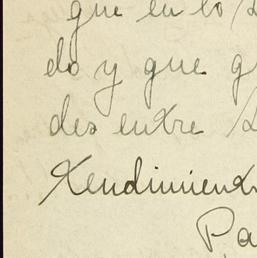 que en lo
do y que
des entre
Rendimient
Pa